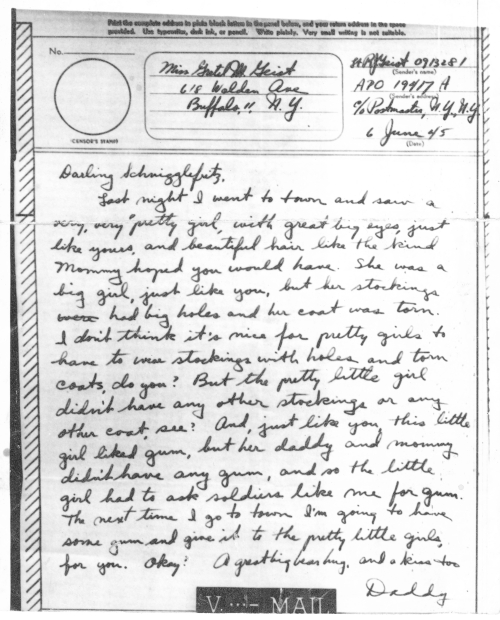 Print the complete address in plain block letters in the panel below, and your return address in the space
provided. Use typewriter, dark ink, or pencil. Write plainly. Very small writing is not suitable.
No.
CENSOR'S STAMP
Miss M. Geist
618 Walden Ave
Buffalo, 11 N.Y.
Geist 0913281
(Sender's name)
APO 19417 A
(Sender's address)
c/o Postmaster, N.Y., N.Y.
6 June 45
(Date)
Darling Schnigglefritz,
Last night I went to town and saw a
very, very pretty girl, with great big eyes, just
like yours, and beautiful hair like the kind
Mommy hoped you would have. She was a
big girl, just like you, but her stockings
were had big holes and her coat was torn.
I don't think it's nice for pretty girls to
have to wear stockings with holes and torn
coats, do you? But the pretty little girl
didn't have any other stockings or any
other coat, see? And, just like you, this little
girl liked gum, but her daddy and mommy
didn't have any gum, and so the little
girl had to ask soldiers like me for gum.
The next time I go to town I'm going to have
some gum and give it to the pretty little girls,
for you. Okay? A great big bear hug, and a kiss too
Daddy
V ...- MAIL